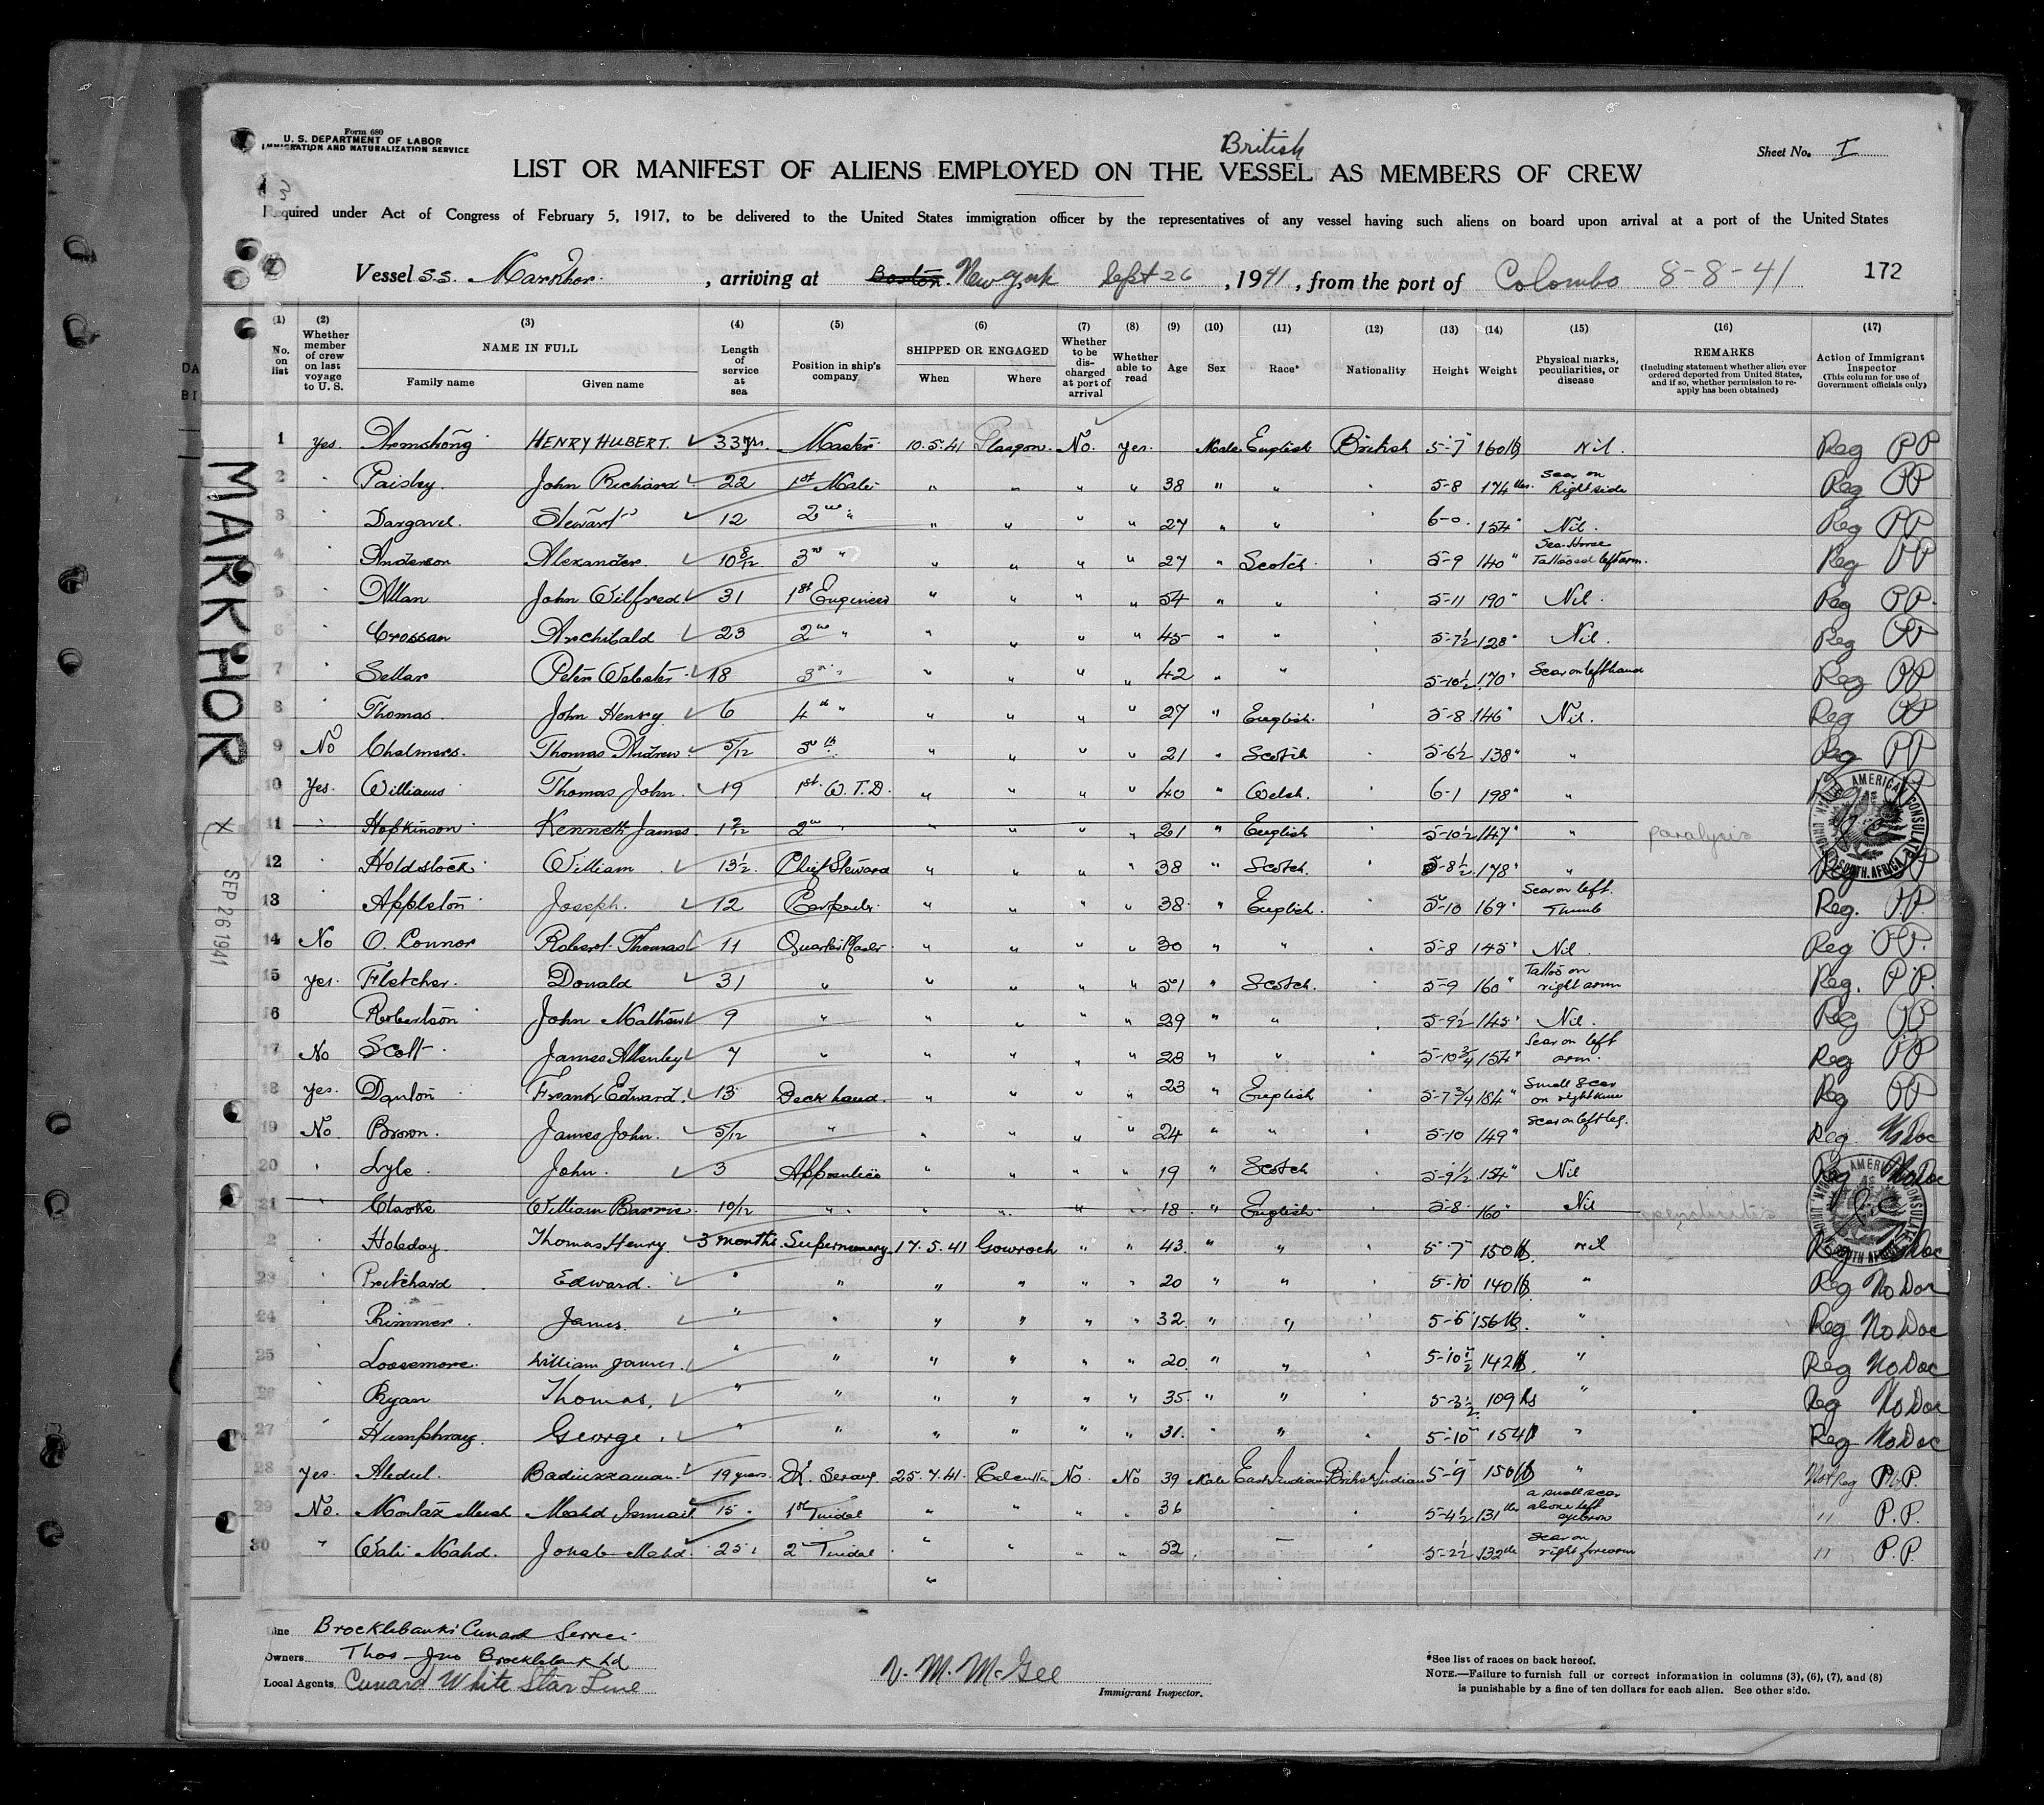 Form 680
U. S. DEPARTMENT OF LABOR
IMMIGRATION AND NATURALIZATION SERVICE
British
Sheet No. I
LIST OR MANIFEST OF ALIENS EMPLOYED ON THE VESSEL AS MEMBERS OF CREW
Required under Act of Congress of February 5, 1917, to be delivered to the United States immigration officer by the representatives of any vessel having such aliens on board upon arrival at a port of the United States
Vessel S.S. Markhor, arriving at Boston New York Sept 26, 1941, from the port of Colombo 8-8-41 172
(1) No. on list (2) Whether member of crew on last voyage to U. S. (3) NAME IN FULL Family name Given name (4) Length of service at sea (5) Position in ship's company (6) SHIPPED OR ENGAGED When Where (7) Whether to be discharged at port of arrival (8) Whether able to read (9) Age (10) Sex (11) Race* (12) Nationality (13) Height (14) Weight (15) Physical marks, peculiarities, or disease (16) REMARKS (Including statement whether alien ever ordered deported from United States, and if so, whether permission to reapply has been obtained) (17) Action of Immigrant Inspector (This column for use of Government officials only)
1 Yes. Armstrong HENRY HUBERT. 33 yrs. Master 10.5.41 Glasgow. No. Yes. Male English British 5-7 160 lb Nil. Reg PP
2 " Paisley. John Richard 22 1st Mate " " " " 38 " " " 5-8 174 lbs. Scar on Right side Reg PP
3 " Dargavel. Stewart 12 2nd " " " " " 27 " " " 6-0. 154 " Nil. Reg PP
4 " Anderson Alexander. 10 8/12 3rd " " " " " 27 " Scotch " 5-9 140 " Sea-Horse Tattooed left arm. Reg PP
5 " Allan John Wilfred. 31 1st Engineer " " " " 54 " " " 5-11 190 " Nil. Reg PP.
6 " Crossan Archibald 23 2nd " " " " " 45 " " " 5-7½ 128 " Nil. Reg PP
7 " Sellar Peter Webster 18 3rd " " " " " 42 " " 5-10½ 170 " Scar on left hand Reg PP
8 " Thomas. John Henry 6 4th " " " " " 27 " English. " 5-8 146 " Nil. Reg PP
9 No Chalmers. Thomas Andrew 5/12 5th " " " " 21 " Scotch " 5-6½ 138 " " Reg PP
10 Yes. Williams Thomas John. 19 1st. W.T.D. " " " " 40 " Welsh. " 6-1 198 " "
11 " Hopkinson Kenneth James 1 2/12 2nd " " " " " 21 " English " 5-10½ 147 " " paralysis
12 " Holdstock William. 13½ Chief Steward " " " " 38 " Scotch. " 5-8½ 178 " " Reg PP
13 " Appleton Joseph. 12 Carpenter " " " " 38 " English. " 5-10 169 " Scar on left. Thumb Reg. P.P.
14 No O. Connor Robert Thomas 11 Quarter Master " " " " 30 " " " 5-8 145 " Nil. Reg PP.
15 Yes. Fletcher. Donald 31 " " " " " 51 " Scotch. " 5-9 160 " Tattoo on right arm Reg. P.P.
16 Robertson John Mathew 9 " " " " " 29 " " " 5-9½ 145 " Nil. Reg PP
17 No Scott. James Allenby 7 " " " " " 28 " " " 5-10¾ 154 " Scar on left arm. Reg PP
18 Yes. Danton Frank Edward. 13 Deck hand. " " " " 23 " English " 5-7¾ 184 " Small Scar on right knee Reg PP
19 No. Brown. James John. 5/12 " " " " " 24 " " " 5-10 149 " Scar on left leg. Reg. No Doc
20 " Lyle. John. 3 Apprentice " " " " 19 " Scotch " 5-9½ 154 " Nil Reg No Doc
21 " Clarke William Barrie. 10/12 " " " " " 18. " English. " 5-8. 160 " Nil
22 " Holeday. Thomas Henry 3 months. Supernumery 17.5.41 Gowrock " " 43. " " " 5-7 150 lb. nil Reg No Doc
23 " Pritchard Edward. " " " " " " 20 " " " 5-10 140 lb. " Reg No Doc
24 " Rimmer. James. " " " " " " 32. " " " 5-6 156 lb. " Reg No Doc
25 " Loosemore. William James. " " " " " " 20. " " " 5-10½ 142 lb. " Reg No Doc
26 " Ryan Thomas. " " " " " " 35. " " " 5-3½ 109 lbs " Reg No Doc
27 " Humphray. George. " " " " " " 31. " " " 5-10 154 lb " Reg No Doc
28 Yes. Abdul. Badiuzzaman. 19 years. Dk. Serang 25.7.41. Calcutta No. No 39 Male East Indian British Indian 5-9 150 lb " Not Reg P.P.
29 No. Montaz Meah Mahd Ismail 15 " 1st Tindal " " " " 36 " " 5-4½ 131 lbs a small scar above left eyebrow " P.P.
30 " Wali Mahd. Jonab Mahd. 25 " 2 Tindal " " " " 52 " — " 5-2½ 132 lbs Scar on right forearm " P.P.
MARKHOR
X
SEP 26 1941
AMERICAN CONSULATE
DURBAN, UNION OF SOUTH AFRICA
AMERICAN CONSULATE
DURBAN, UNION OF SOUTH AFRICA
Line Brocklebanks' Cunard Service
Owners Thos Jno Brocklebank Ltd
Local Agents Cunard White Star Line
V. M. McGee
Immigrant Inspector.
*See list of races on back hereof.
NOTE.—Failure to furnish full or correct information in columns (3), (6), (7), and (8)
is punishable by a fine of ten dollars for each alien. See other side.